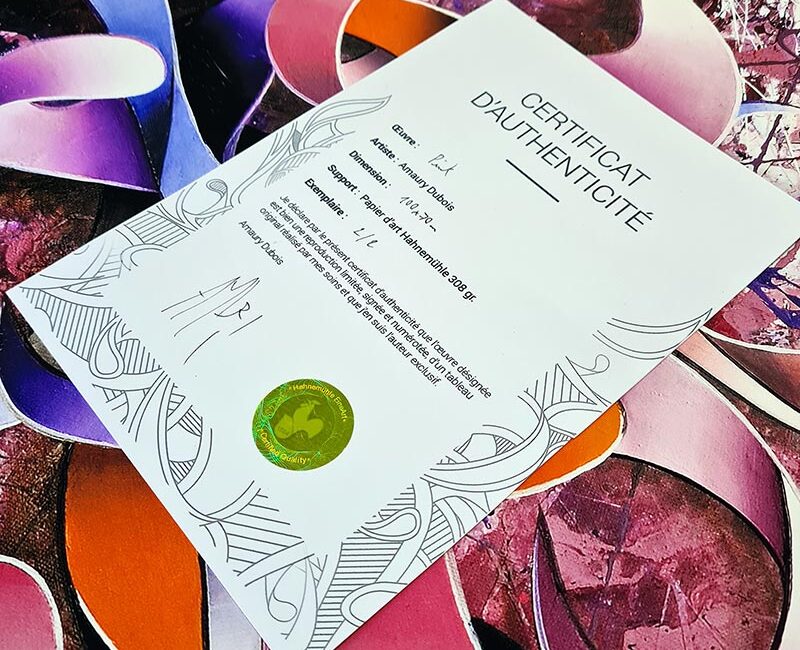 CERTIFICAT
D'AUTHENTICITÉ
Œuvre :
Artiste : Amaury Dubois
Dimension : 100x70
Support : Papier d'art Hahnemühle 308 gr.
Exemplaire : 2/2
Je déclare par le présent certificat d'authenticité que l'œuvre désignée
est bien une reproduction limitée, signée et numérotée, d'un tableau
original réalisé par mes soins et que j'en suis l'auteur exclusif.
Amaury Dubois
Hahnemühle FineArt
Certified Quality